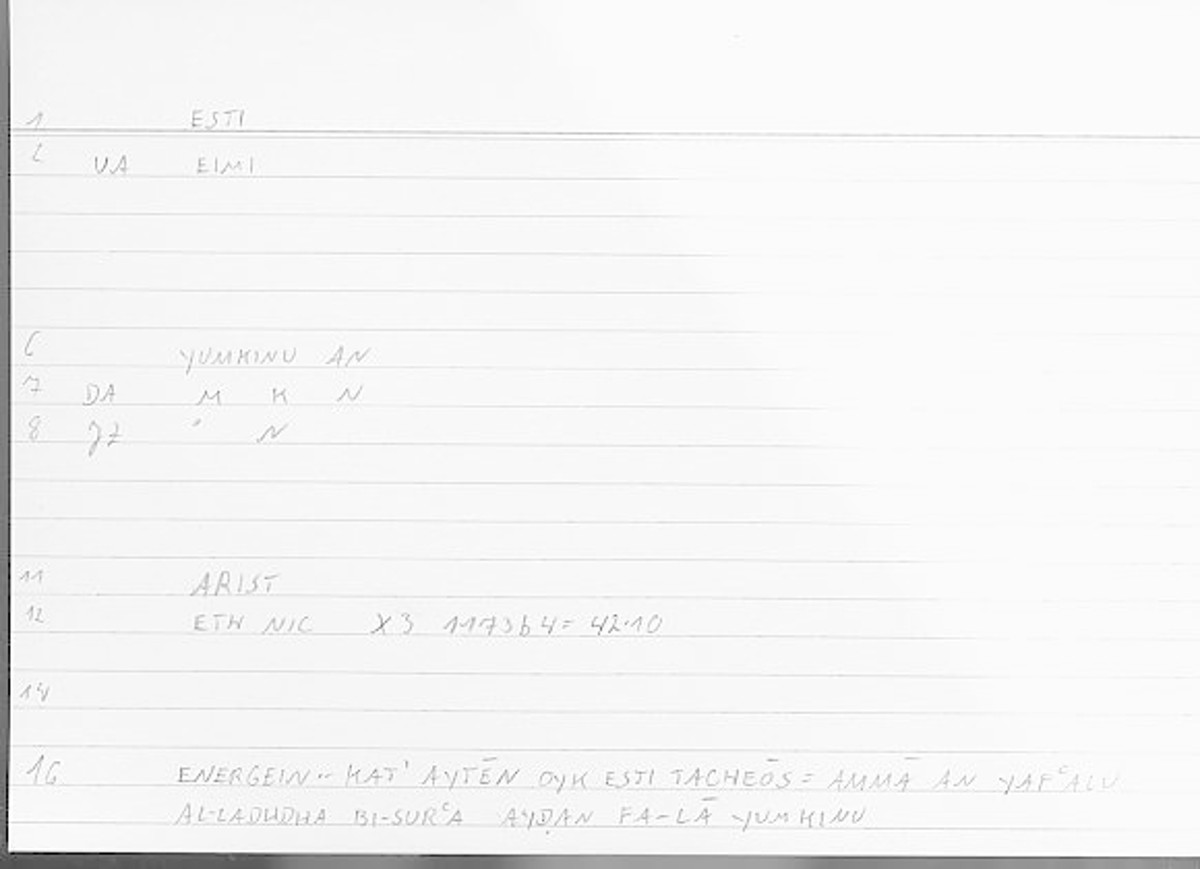 1 ESTI
2 VA EIMI
6 YUMKINU AN
7 DA M K N
8 JZ ' N
11 ARIST
12 ETH NIC X3 1173b4= 42.10
14
16 ENERGEIN·· KAT' AYTĒN OYK ESTI TACHEŌS = AMMĀ AN YAFᶜALU
AL-LADHDHA BI-SURᶜA AYḌAN FA-LĀ YUMKINU